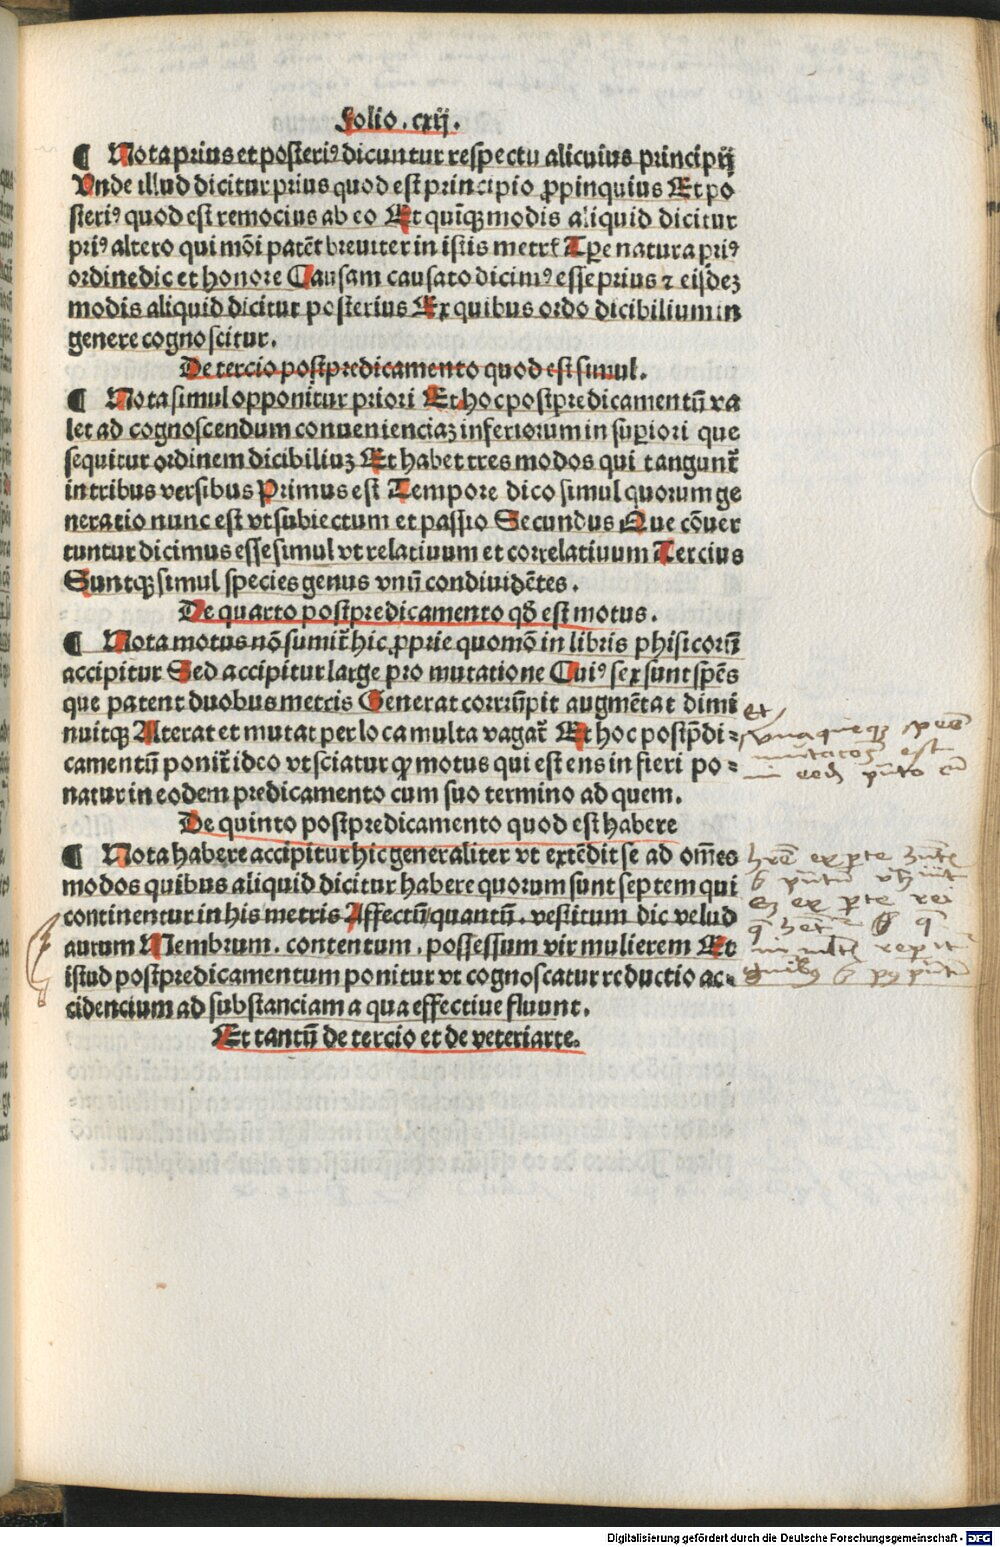 Folio. cxij.
¶ Nota prius et posteriꝰ dicuntur respectu alicuius principij
Vnde illud dicitur prius quod est principio ꝓpinquius Et po
steriꝰ quod est remocius ab eo Et quinqꝫ modis aliquid dicitur
priꝰ altero qui mōi patēt breuiter in istis metrꝭ Tꝑe natura priꝰ
ordine dic et honore Causam causato dicimꝰ esse prius ⁊ eijsdeꝫ
modis aliquid dicitur posterius Ex quibus ordo dicibilium in
genere cognoscitur.
De tercio postpredicamento quod est simul.
¶ Nota simul opponitur priori Et hoc postpredicamentū va
let ad cognoscendum conuenienciaꝫ inferiorum in suꝑiori que
sequitur ordinem dicibiliuꝫ Et habet tres modos qui tangunt᷑
in tribus versibus Primus est Tempore dico simul quorum ge
neratio nunc est vt subiectum et passio Secundus Que cōuer
tuntur dicimus esse simul vt relatiuum et correlatiuum Tercius
Suntqꝫ simul species genus vnū condiuidētes.
De quarto postpredicamento qd̄ est motus.
¶ Nota motus nō sumit᷑ hic ꝓprie quomō in libris phisicorū
accipitur Sed accipitur large pro mutatione Cuiꝰ sex sunt spēs
que patent duobus metris Generat corrūpit augmētat dimi
nuitqꝫ Alterat et mutat per loca multa vagat᷑ Et hoc postp̄di⸗
camentū ponit᷑ ideo vt sciatur ꝙ motus qui est ens in fieri po⸗
natur in eodem predicamento cum suo termino ad quem.
De quinto postpredicamento quod est habere
¶ Nota habere accipitur hic generaliter vt extēdit se ad om̄es
modos quibus aliquid dicitur habere quorum sunt septem qui
continentur in his metris Affectū quantū. vestitum dic velud
aurum Membrum. contentum. possessum vir mulierem Et
istud postpredicamentum ponitur vt cognoscatur reductio ac⸗
cidencium ad substanciam a qua effectiue fluunt.
Et tantū de tercio et de veteri arte.
et
est
ex ꝑte
ex ꝑte rei
Digitalisierung gefördert durch die Deutsche Forschungsgemeinschaft - DFG